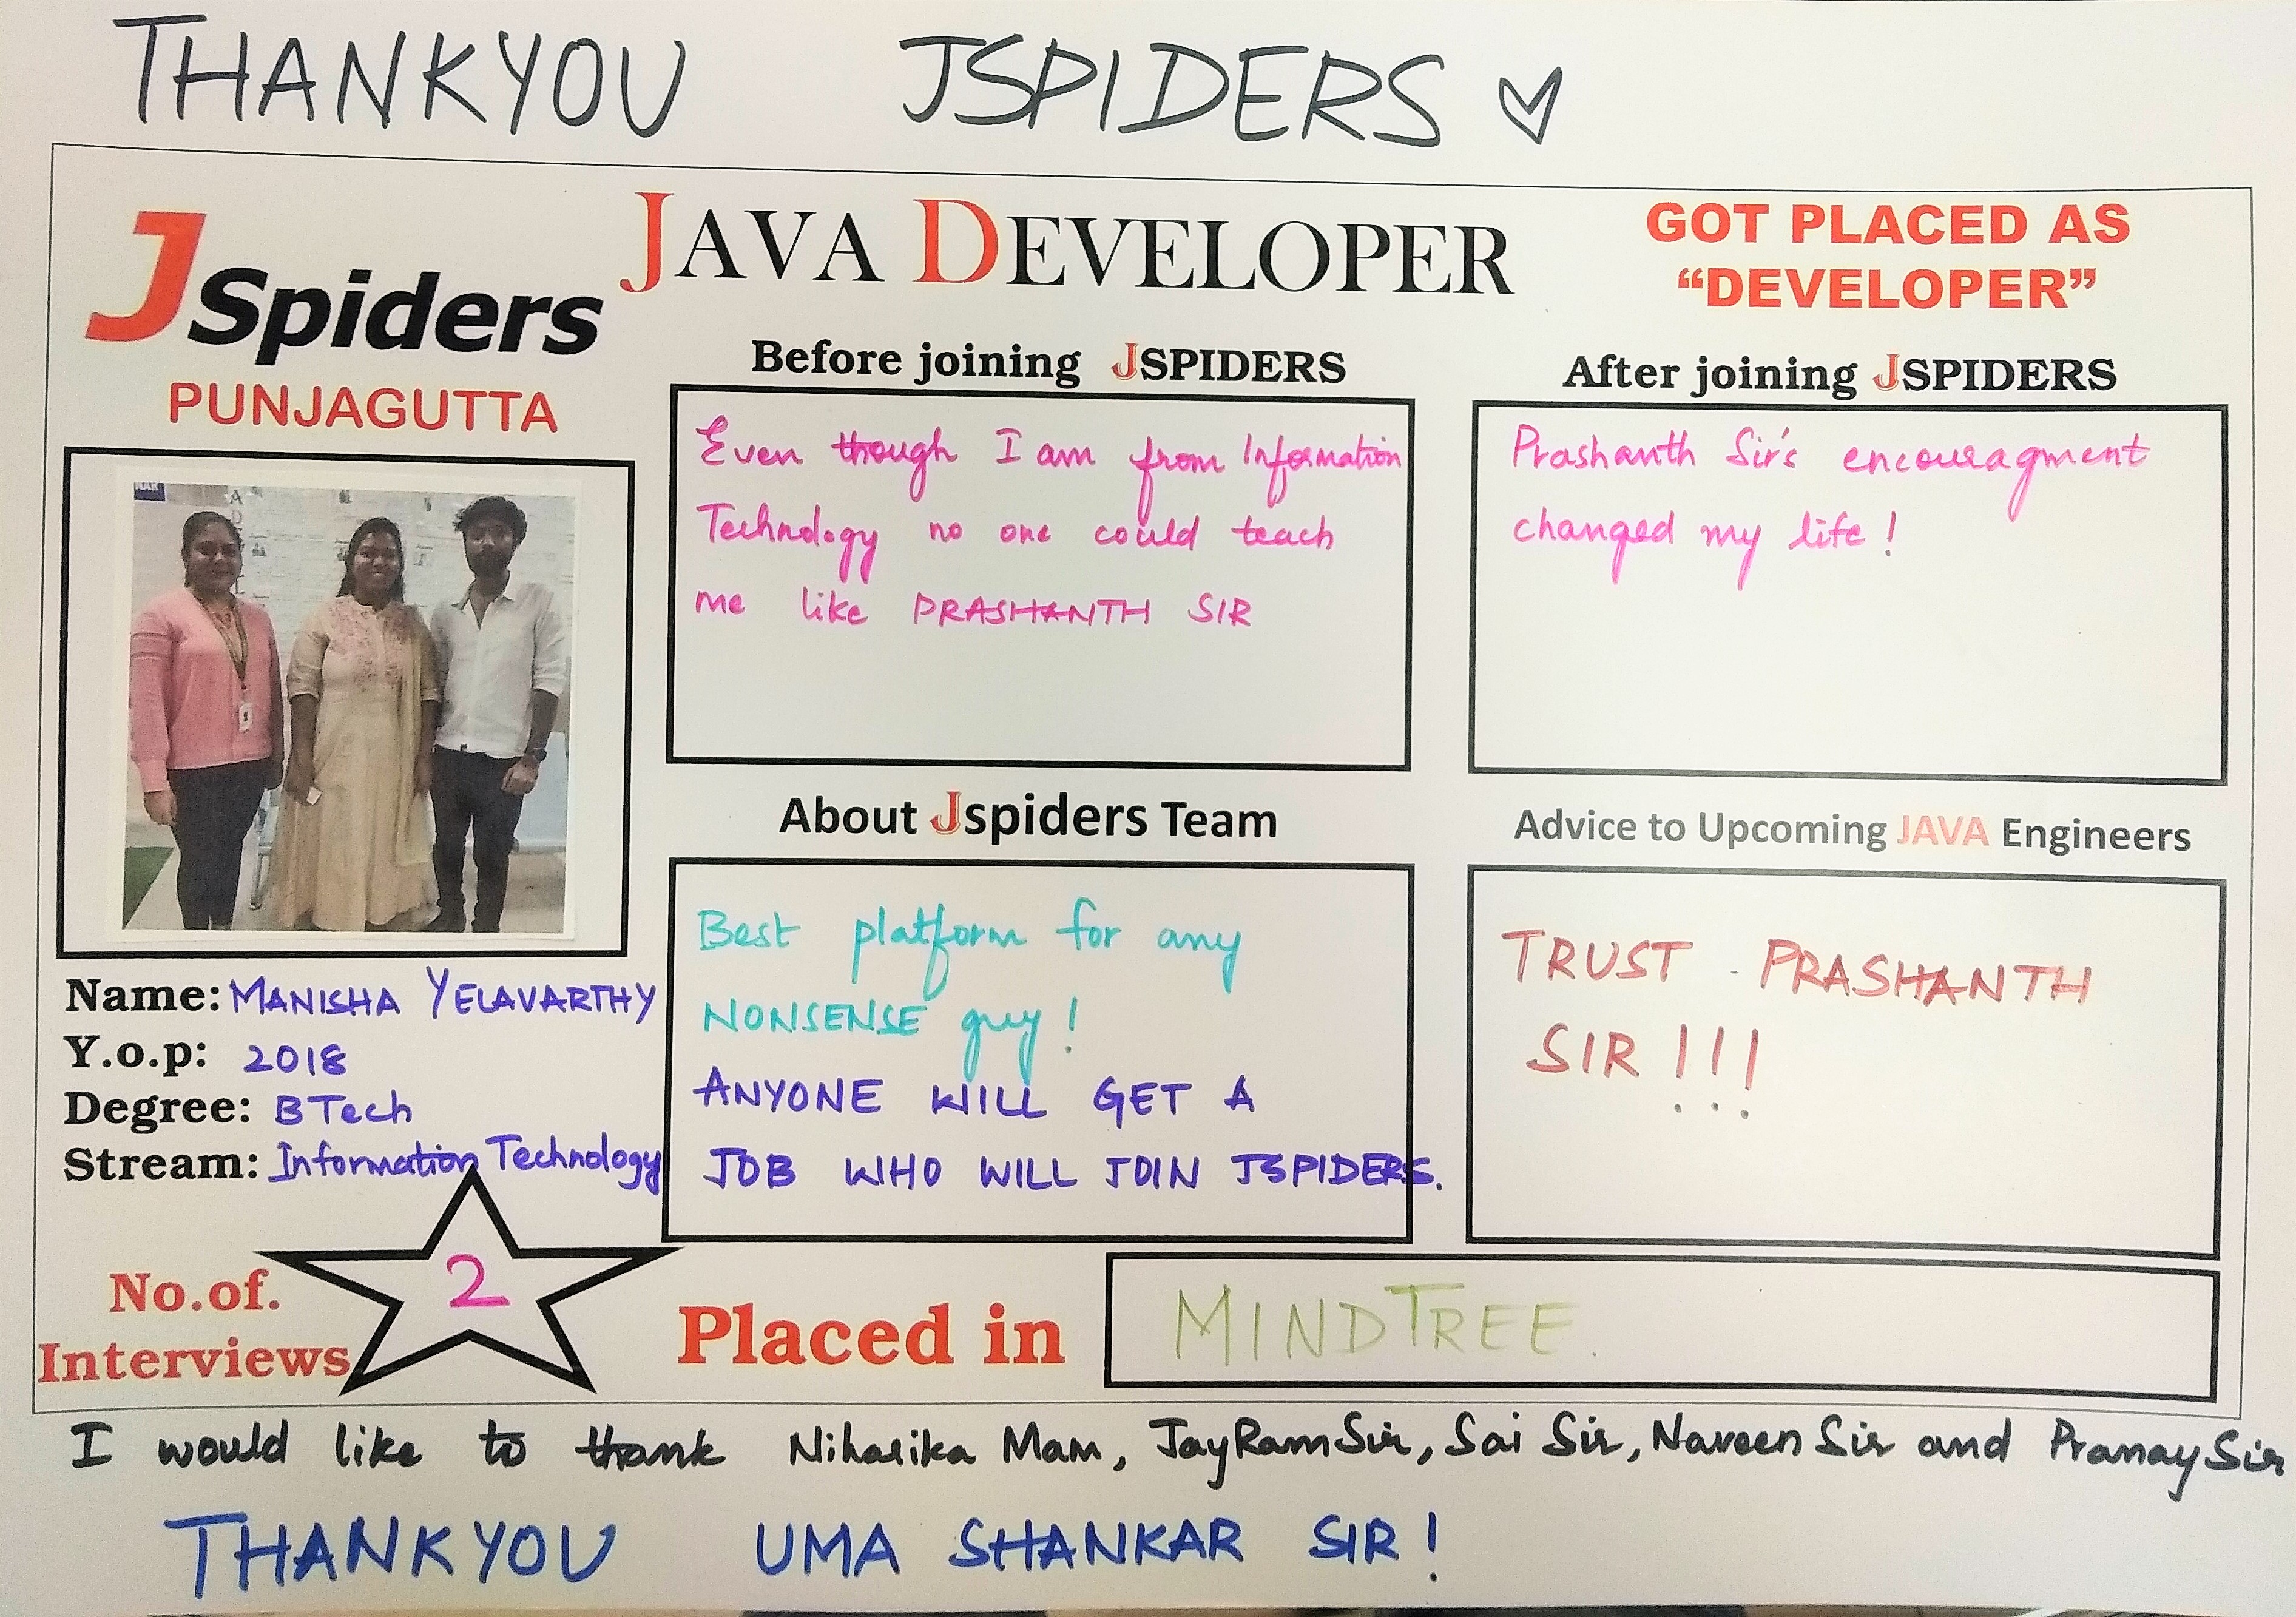 THANKYOU JSPIDERS
JSpiders
PUNJAGUTTA
JAVA DEVELOPER
GOT PLACED AS
“DEVELOPER”
Before joining JSPIDERS
Even though I am from Information
Technology no one could teach
me like PRASHANTH SIR
After joining JSPIDERS
Prashanth Sir's encouragment
changed my life!
Name: MANISHA YELAVARTHY
Y.o.p: 2018
Degree: BTech
Stream: Information Technology
About Jspiders Team
Best platform for any
NONSENSE guy!
ANYONE WILL GET A
JOB WHO WILL JOIN JSPIDERS.
Advice to Upcoming JAVA Engineers
TRUST PRASHANTH
SIR!!!
No.of.
Interviews
2
Placed in
MINDTREE.
I would like to thank Niharika Mam, JayRam Sir, Sai Sir, Naveen Sir and Pranay Sir
THANKYOU UMA SHANKAR SIR!